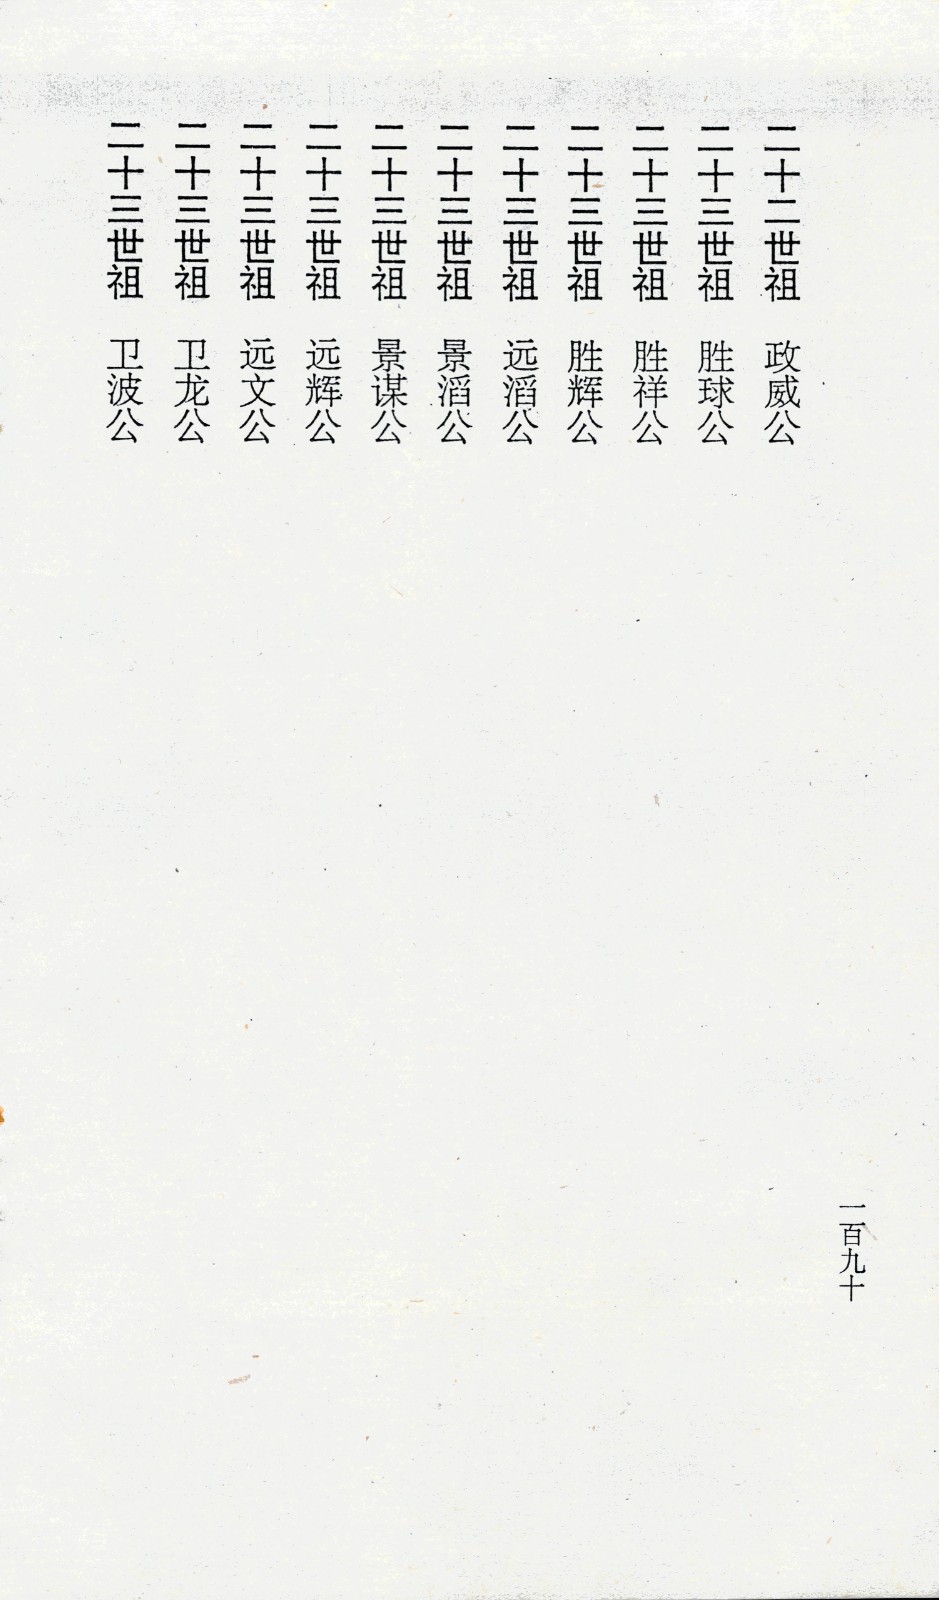 二十二世祖　政威公
二十三世祖　胜球公
二十三世祖　胜祥公
二十三世祖　胜辉公
二十三世祖　远滔公
二十三世祖　景滔公
二十三世祖　景谋公
二十三世祖　远辉公
二十三世祖　远文公
二十三世祖　卫龙公
二十三世祖　卫波公
一百九十